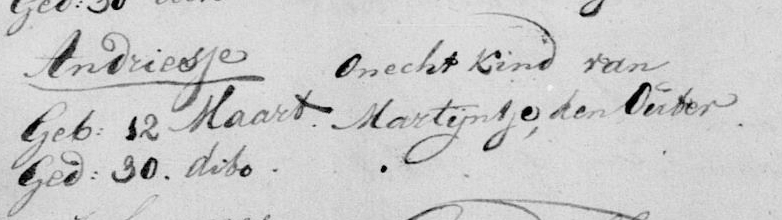 Ged: 30 dito
Andriesje onecht Kind van
Geb: 12 Maart. Martijntje, den Outer
Ged: 30. dito.